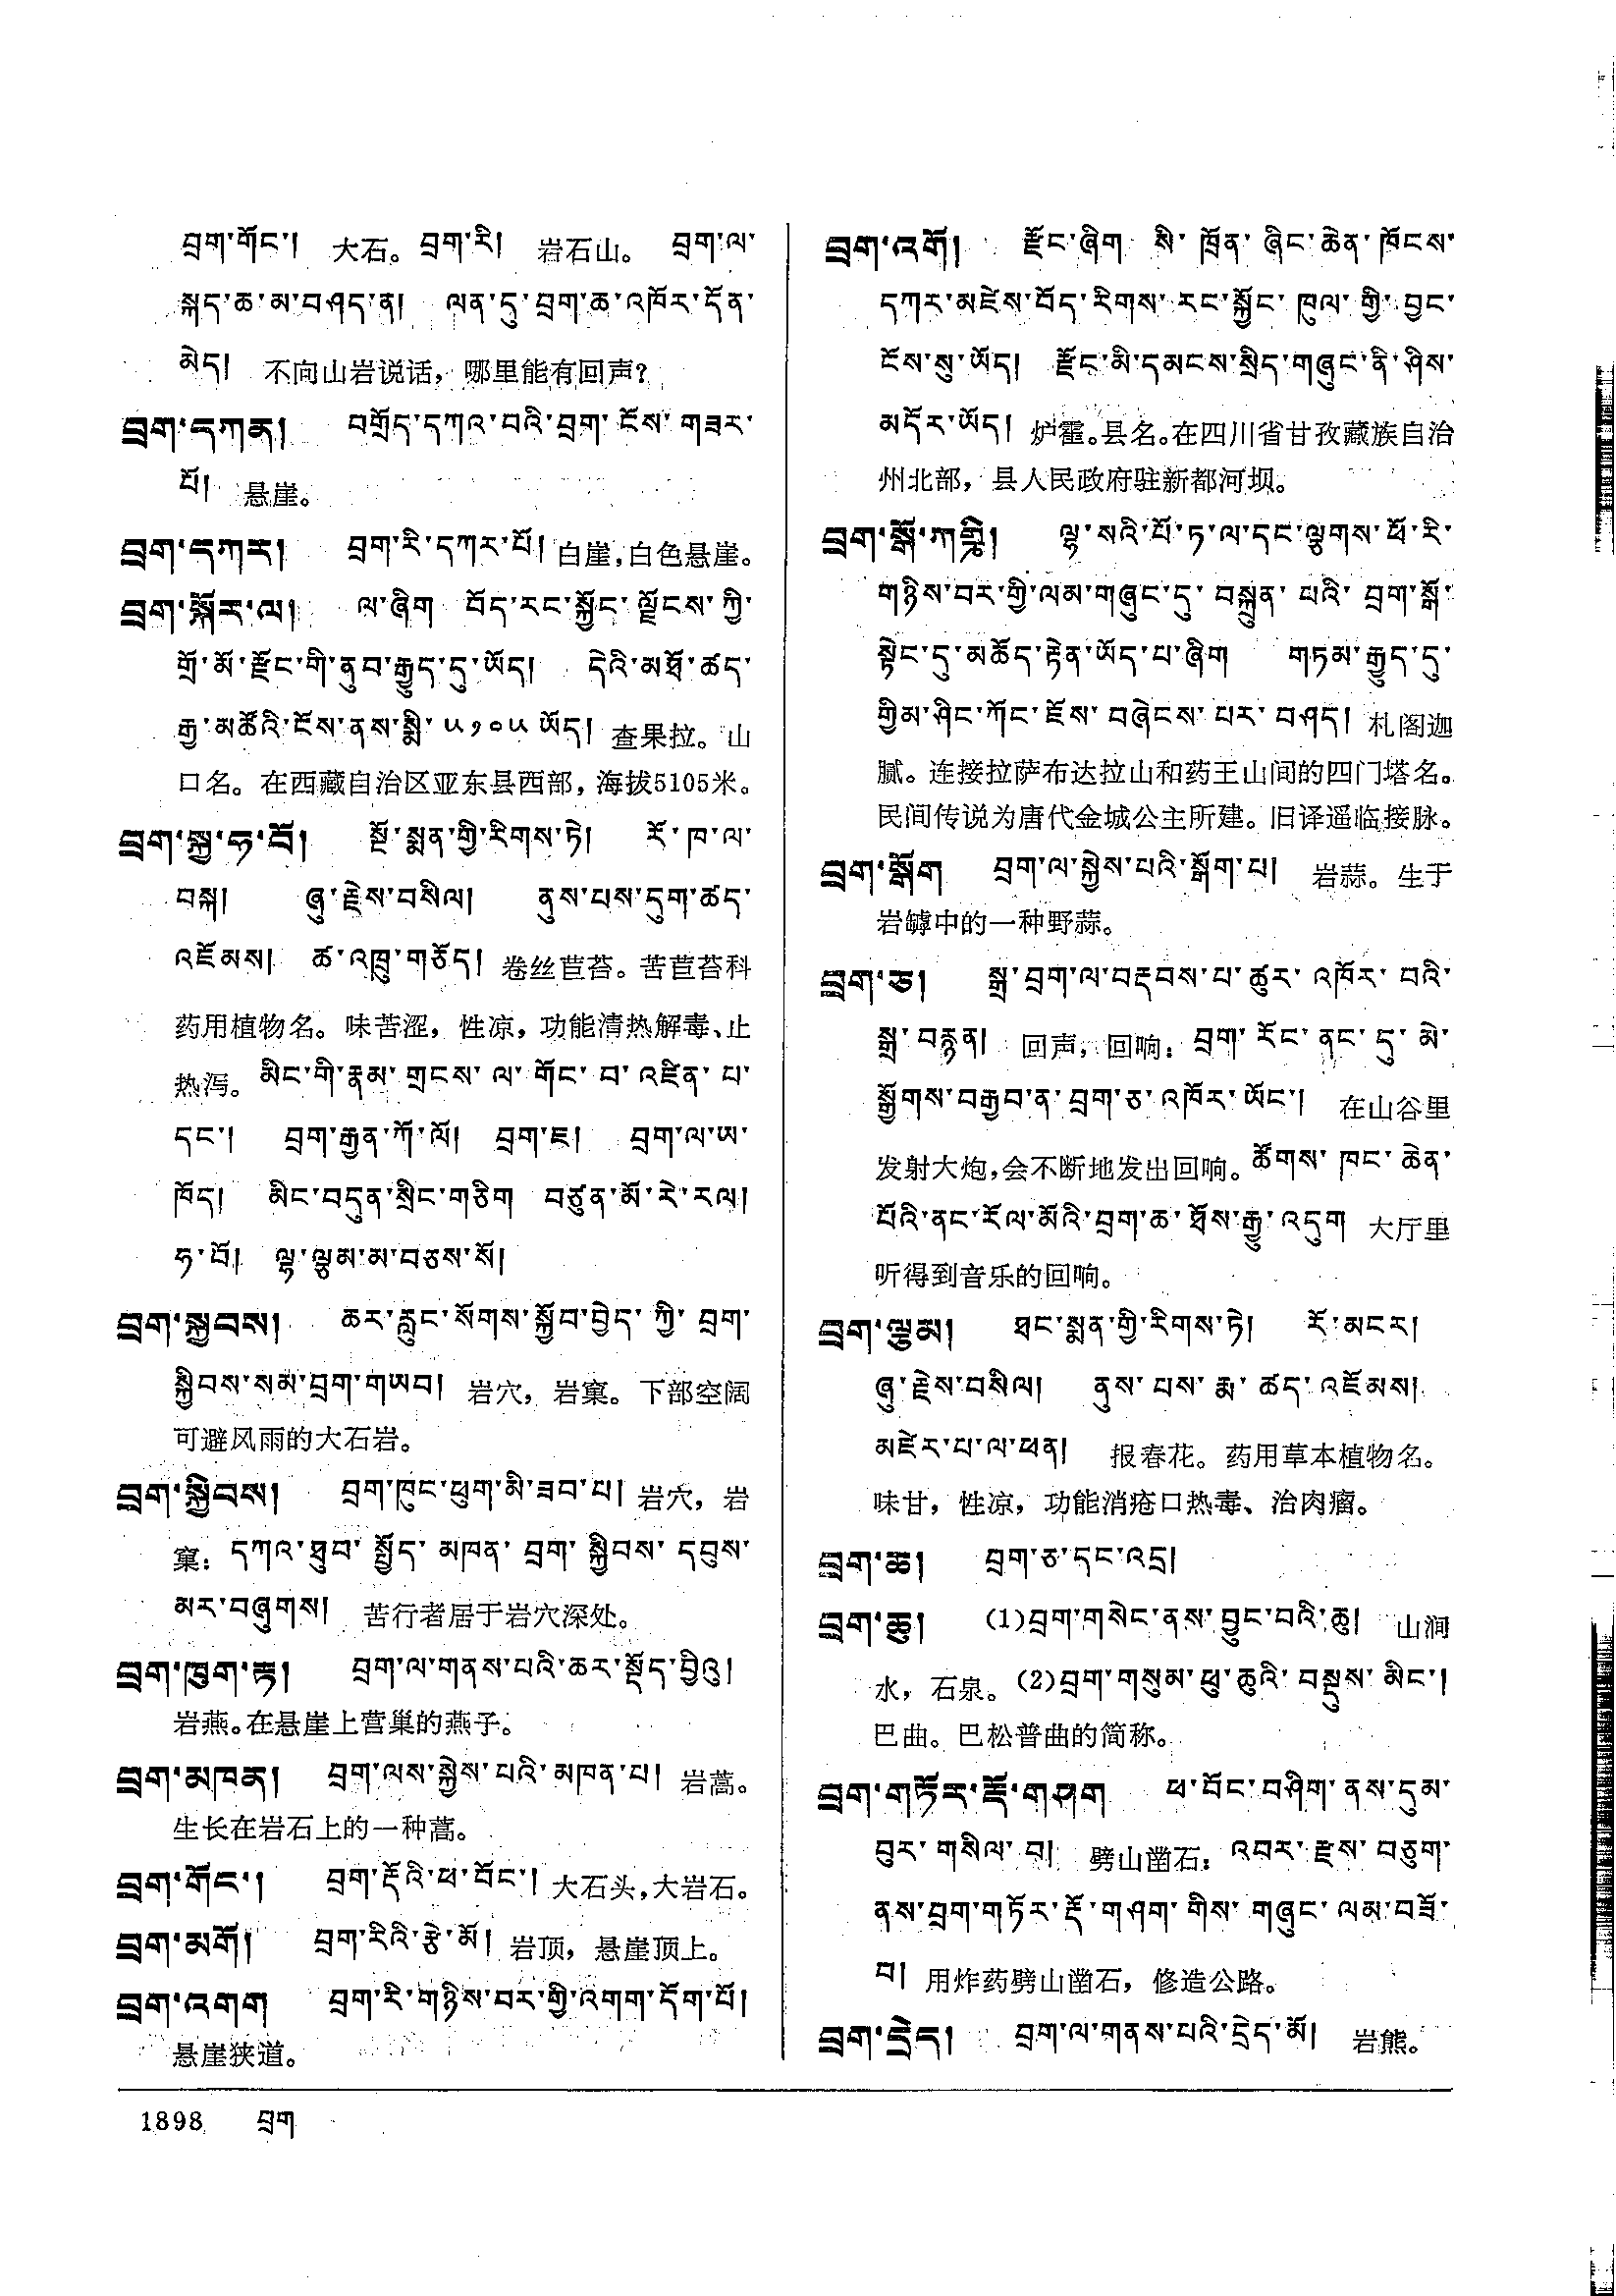 བྲག་གོང་། 大石。བྲག་རི། 岩石山。 བྲག་ལ་
སྐད་ཆ་མ་བཤད་ན། ལན་དུ་བྲག་ཆ་འཁོར་དོན་
མེད། 不向山岩说话，哪里能有回声？
བྲག་དཀན། བགྲོད་དཀའ་བའི་བྲག་ངོས་གཟར་
པོ། 悬崖。
བྲག་དཀར། བྲག་རི་དཀར་པོ། 白崖，白色悬崖。
བྲག་སྐོར་ལ། ལ་ཞིག བོད་རང་སྐྱོང་ལྗོངས་ཀྱི་
གྲོ་མོ་རྫོང་གི་ནུབ་རྒྱུད་དུ་ཡོད། དེའི་མཐོ་ཚད་
རྒྱ་མཚོའི་ངོས་ནས་སྨི་༥༡༠༥ཡོད། 查果拉。山
口名。在西藏自治区亚东县西部，海拔5105米。
བྲག་སྐྱ་ཧ་བོ། སྔོ་སྨན་གྱི་རིགས་ཏེ། རོ་ཁ་ལ་
བསྐ། ཞུ་རྗེས་བསིལ། ནུས་པས་དུག་ཚད་
འཇོམས། ཚ་འཁྲུ་གཅོད། 卷丝苣苔。苦苣苔科
药用植物名。味苦涩，性凉，功能清热解毒、止
热泻。མིང་གི་རྣམ་གྲངས་ལ་གོང་བ་འཛིན་པ་
དང་། བྲག་རྒྱན་ཀོ་ལོ། བྲག་ཇ། བྲག་ལ་ཨ་
ཁོད། མིང་བདུན་སྲིང་གཅིག བཙུན་མོ་རེ་རལ།
ཧ་བོ། ལྷ་ལྕམ་མ་བཅས་སོ།
བྲག་སྐྱབས། ཆར་རླུང་སོགས་སྐྱོབ་བྱེད་ཀྱི་བྲག་
སྐྱིབས་སམ་བྲག་གཡབ། 岩穴，岩窠。下部空阔
可避风雨的大石岩。
བྲག་སྐྱིབས། བྲག་ཁུང་ཕུག་མི་ཟབ་པ། 岩穴，岩
窠：དཀའ་ཐུབ་སྤྱོད་མཁན་བྲག་སྐྱིབས་དབུས་
མར་བཞུགས། 苦行者居于岩穴深处。
བྲག་ཁུག་རྟ། བྲག་ལ་གནས་པའི་ཆར་སྡོད་བྱིའུ།
岩燕。在悬崖上营巢的燕子。
བྲག་མཁན། བྲག་ལས་སྐྱེས་པའི་མཁན་པ། 岩蒿。
生长在岩石上的一种蒿。
བྲག་གོང་། བྲག་རྡོའི་ཕ་བོང་། 大石头，大岩石。
བྲག་མགོ། བྲག་རིའི་རྩེ་མོ། 岩顶，悬崖顶上。
བྲག་འགག བྲག་རི་གཉིས་བར་གྱི་འགག་དོག་པོ།
悬崖狭道。
བྲག་འགོ། རྫོང་ཞིག སི་ཁྲོན་ཞིང་ཆེན་ཁོངས་
དཀར་མཛེས་བོད་རིགས་རང་སྐྱོང་ཁུལ་གྱི་བྱང་
ངོས་སུ་ཡོད། རྫོང་མི་དམངས་སྲིད་གཞུང་ནི་ཤིས་
མདོར་ཡོད། 炉霍。县名。在四川省甘孜藏族自治
州北部，县人民政府驻新都河坝。
བྲག་སྒོ་ཀགྷི། ལྷ་སའི་པོ་ཏ་ལ་དང་ལྕགས་ཕོ་རི་
གཉིས་བར་གྱི་ལམ་གཞུང་དུ་བསྐྲུན་པའི་བྲག་སྒོ་
སྟེང་དུ་མཆོད་རྟེན་ཡོད་པ་ཞིག གཏམ་རྒྱུད་དུ་
གྱིམ་ཤིང་ཀོང་ཇོས་བཞེངས་པར་བཤད། 札阁迦
腻。连接拉萨布达拉山和药王山间的四门塔名。
民间传说为唐代金城公主所建。旧译遥临接脉。
བྲག་སྒོག བྲག་ལ་སྐྱེས་པའི་སྒོག་པ། 岩蒜。生于
岩罅中的一种野蒜。
བྲག་ཅ། སྒྲ་བྲག་ལ་བརྡབས་པ་ཚུར་འཁོར་བའི་
སྒྲ་བརྙན། 回声，回响：བྲག་རོང་ནང་དུ་མེ་
སྒྱོགས་བརྒྱབ་ན་བྲག་ཅ་འཁོར་ཡོང་། 在山谷里
发射大炮，会不断地发出回响。ཚོགས་ཁང་ཆེན་
པོའི་ནང་རོལ་མོའི་བྲག་ཆ་ཐོས་རྒྱུ་འདུག 大厅里
听得到音乐的回响。
བྲག་ལྕམ། ཐང་སྨན་གྱི་རིགས་ཏེ། རོ་མངར།
ཞུ་རྗེས་བསིལ། ནུས་པས་རྨ་ཚད་འཇོམས།
མཛེར་པ་ལ་ཕན། 报春花。药用草本植物名。
味甘，性凉，功能消疮口热毒、治肉瘤。
བྲག་ཆ། བྲག་ཅ་དང་འདྲ།
བྲག་ཆུ། (1)བྲག་གསེང་ནས་བྱུང་བའི་ཆུ། 山涧
水，石泉。(2)བྲག་གསུམ་ཕུ་ཆུའི་བསྡུས་མིང་།
巴曲。巴松普曲的简称。
བྲག་གཏོར་རྡོ་གཤག ཕ་བོང་བཤིག་ནས་དུམ་
བུར་གསིལ་བ། 劈山凿石：འབར་རྫས་བཅུག་
ནས་བྲག་གཏོར་རྡོ་གཤག་གིས་གཞུང་ལམ་བཟོ་
བ། 用炸药劈山凿石，修造公路。
བྲག་དྲེད། བྲག་ལ་གནས་པའི་དྲེད་མོ། 岩熊。
1898 བྲག